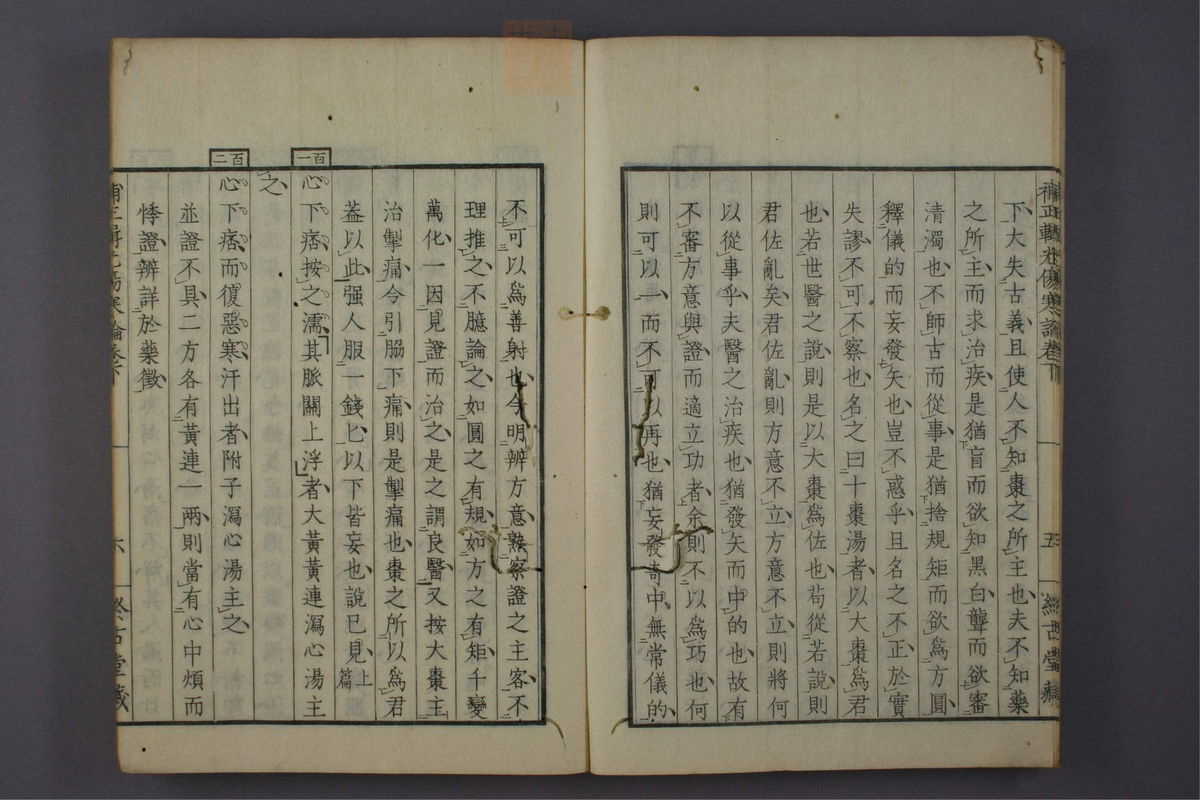 下大失古義且使人不知棗之所主也夫不知藥
之所主而求治疾是猶盲而欲知黑白聾而欲審
清濁也不師古而從事是猶捨規矩而欲爲方圓
釋儀的而妄發矢也豈不惑乎且名之不正於實
失謬不可不察也名之曰十棗湯者以大棗爲君
也若世醫之說則是以大棗爲佐也苟從若說則
君佐亂矣君佐亂則方意不立方意不立則將何
以從事乎夫醫之治疾也猶發矢而中的也故有
不審方意與證而適立功者余則不以爲巧也何
則可以一而不可以再也猶妄發奇中無常儀的
不可以爲善射也今明辨方意熟察證之主客不
理推之不臆論之如圓之有規如方之有矩千變
萬化一因見證而治之是之謂良醫又按大棗主
治掣痛今引脇下痛則是掣痛也棗之所以爲君
葢以此强人服一錢匕以下皆妄也說已見上篇
百一
心下痞按之濡其脈關上浮者大黃黃連瀉心湯主
之
百二
心下痞而復惡寒汗出者附子瀉心湯主之
並證不具二方各有黃連一兩則當有心中煩而
悸證辨詳於藥徵
五
六